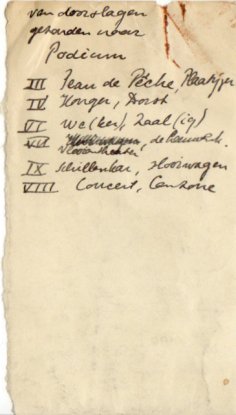 van doorslagen
gezonden naar
Podium
III Jean de Pêche, Plaatijzer
IV Honger, Dorst
VI We(ker), Zaal(ig)
VII de
Vlooientheater
IX Schillenkar, Hooiwagen
VIII Concert, Canzone